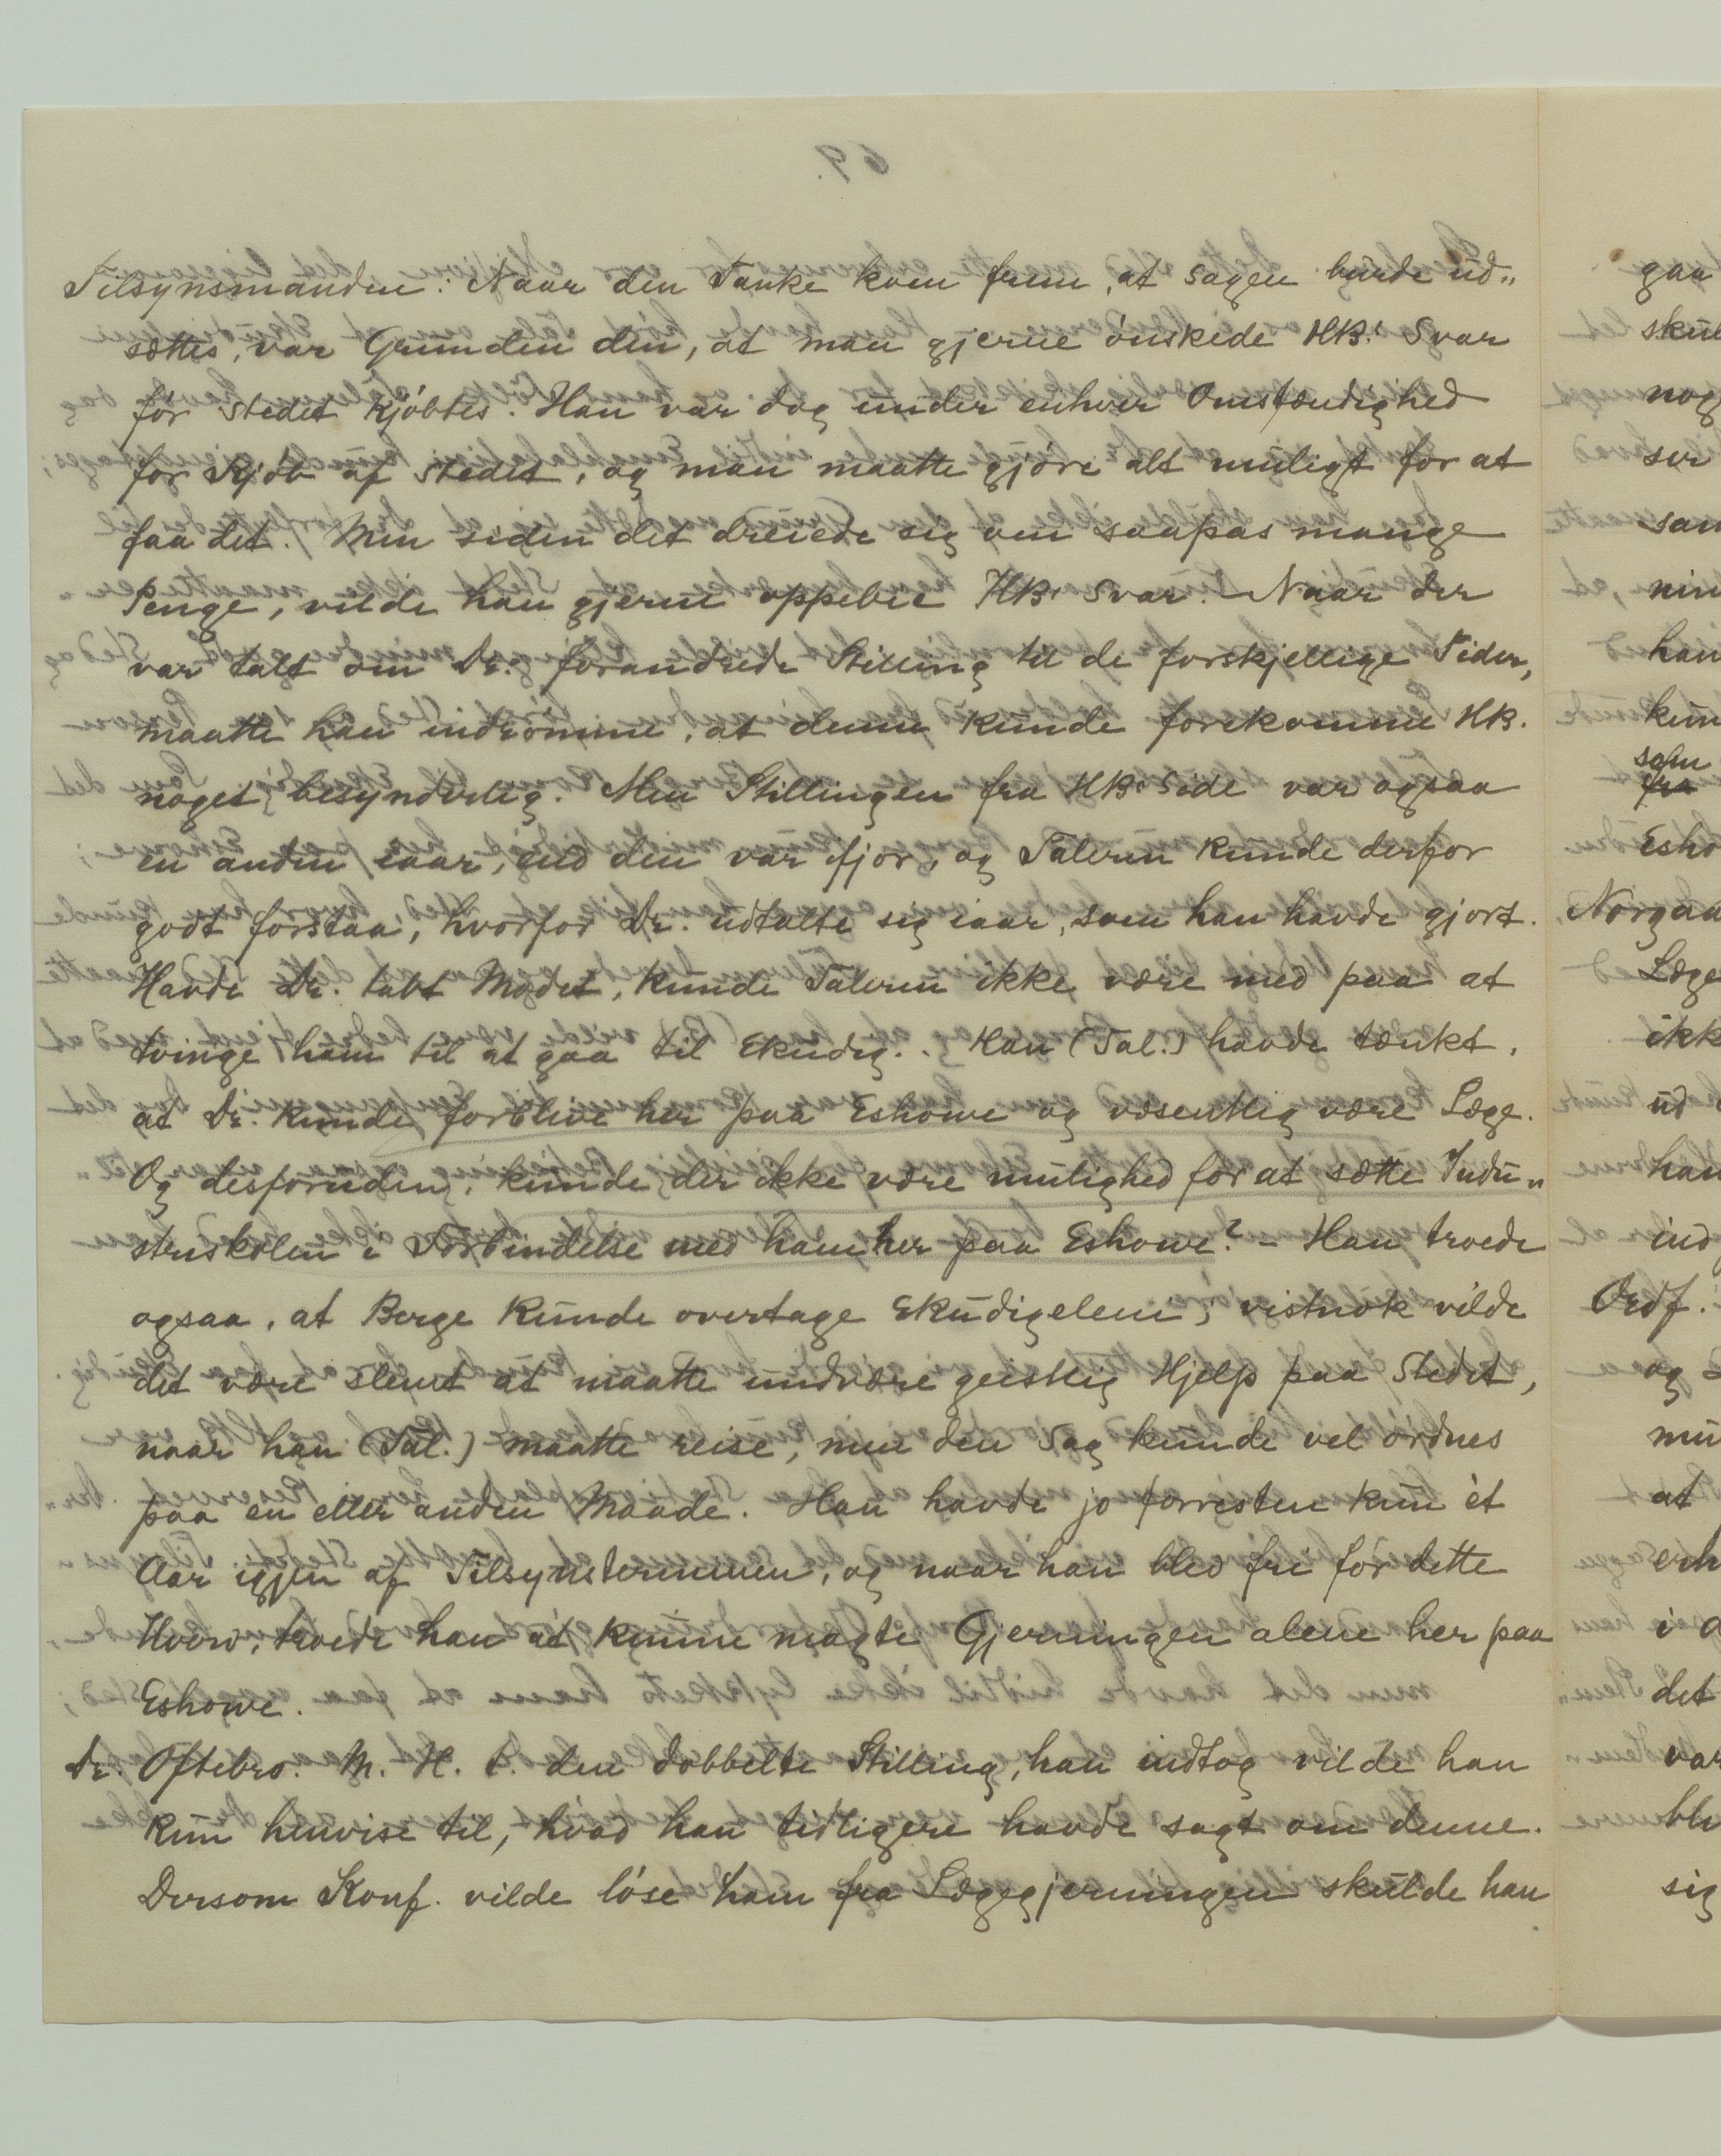 Tilsynsmanden: Naar den Tanke kom frem, at sagen burde ud„
sættes, var Grunden den, at man gjerne ønskede HB.' Svar
før stedet kjøbtes. Han var dog under enhver Omstændighed
for Kjøb af stedet, og man maatte gjøre alt muligt for at
faa det. Men siden det dreiede sig om saapas mange
Penge, vilde han gjerne oppebie HB' svar. – Naar der
var talt om Dr.' forandrede Stilling til de forskjellige Tider,
maatte han indrømme, at denne kunde forekomme HB.
noget besynderlig. Men Stillingen fra HB' Side var ogsaa
en anden iaar, end den var ifjor, og Taleren kunde derfor
godt forstaa, hvorfor Dr. udtalte sig iaar, som han havde gjort.
Havde Dr. tabt Modet, kunde Taleren ikke være med paa at
tvinge ham til at gaa til Ekudig.. Han (Tal.) havde tænkt,
at Dr. kunde forblive her paa Eshowe og væsentlig være Læge.
Og desforuden, kunde der ikke være mulighed for at sætte Indu„
striskolen i Forbindelse med ham her paa Eshowe? – Han troede
ogsaa, at Borge kunde overtage Ekudigeleni; vistnok vilde
det være slemt at maatte undvære geistlig Hjelp paa Stedet,
naar han (Tal.) maatte reise, men den Sag kunde vel ordnes
paa en eller anden Maade. Han havde jo forresten kun ét
Aar igjen af Tilsynsterminen, og naar han blev fri for dette
Hverv, troede han at kunne magte Gjerningen alene her paa
Eshowe.
Dr. Oftebro. M. H. t. den dobbelte Stilling, han indtog vilde han
kun henvise til, hvad han tidligere havde sagt om denne.
Dersom Konf. vilde løse ham fra Lægegjerningen skulde han
gaa
nog
ser
han
som
fra
Læge
ud
han
ind
Ordf.
og
at
i
det
var
sig